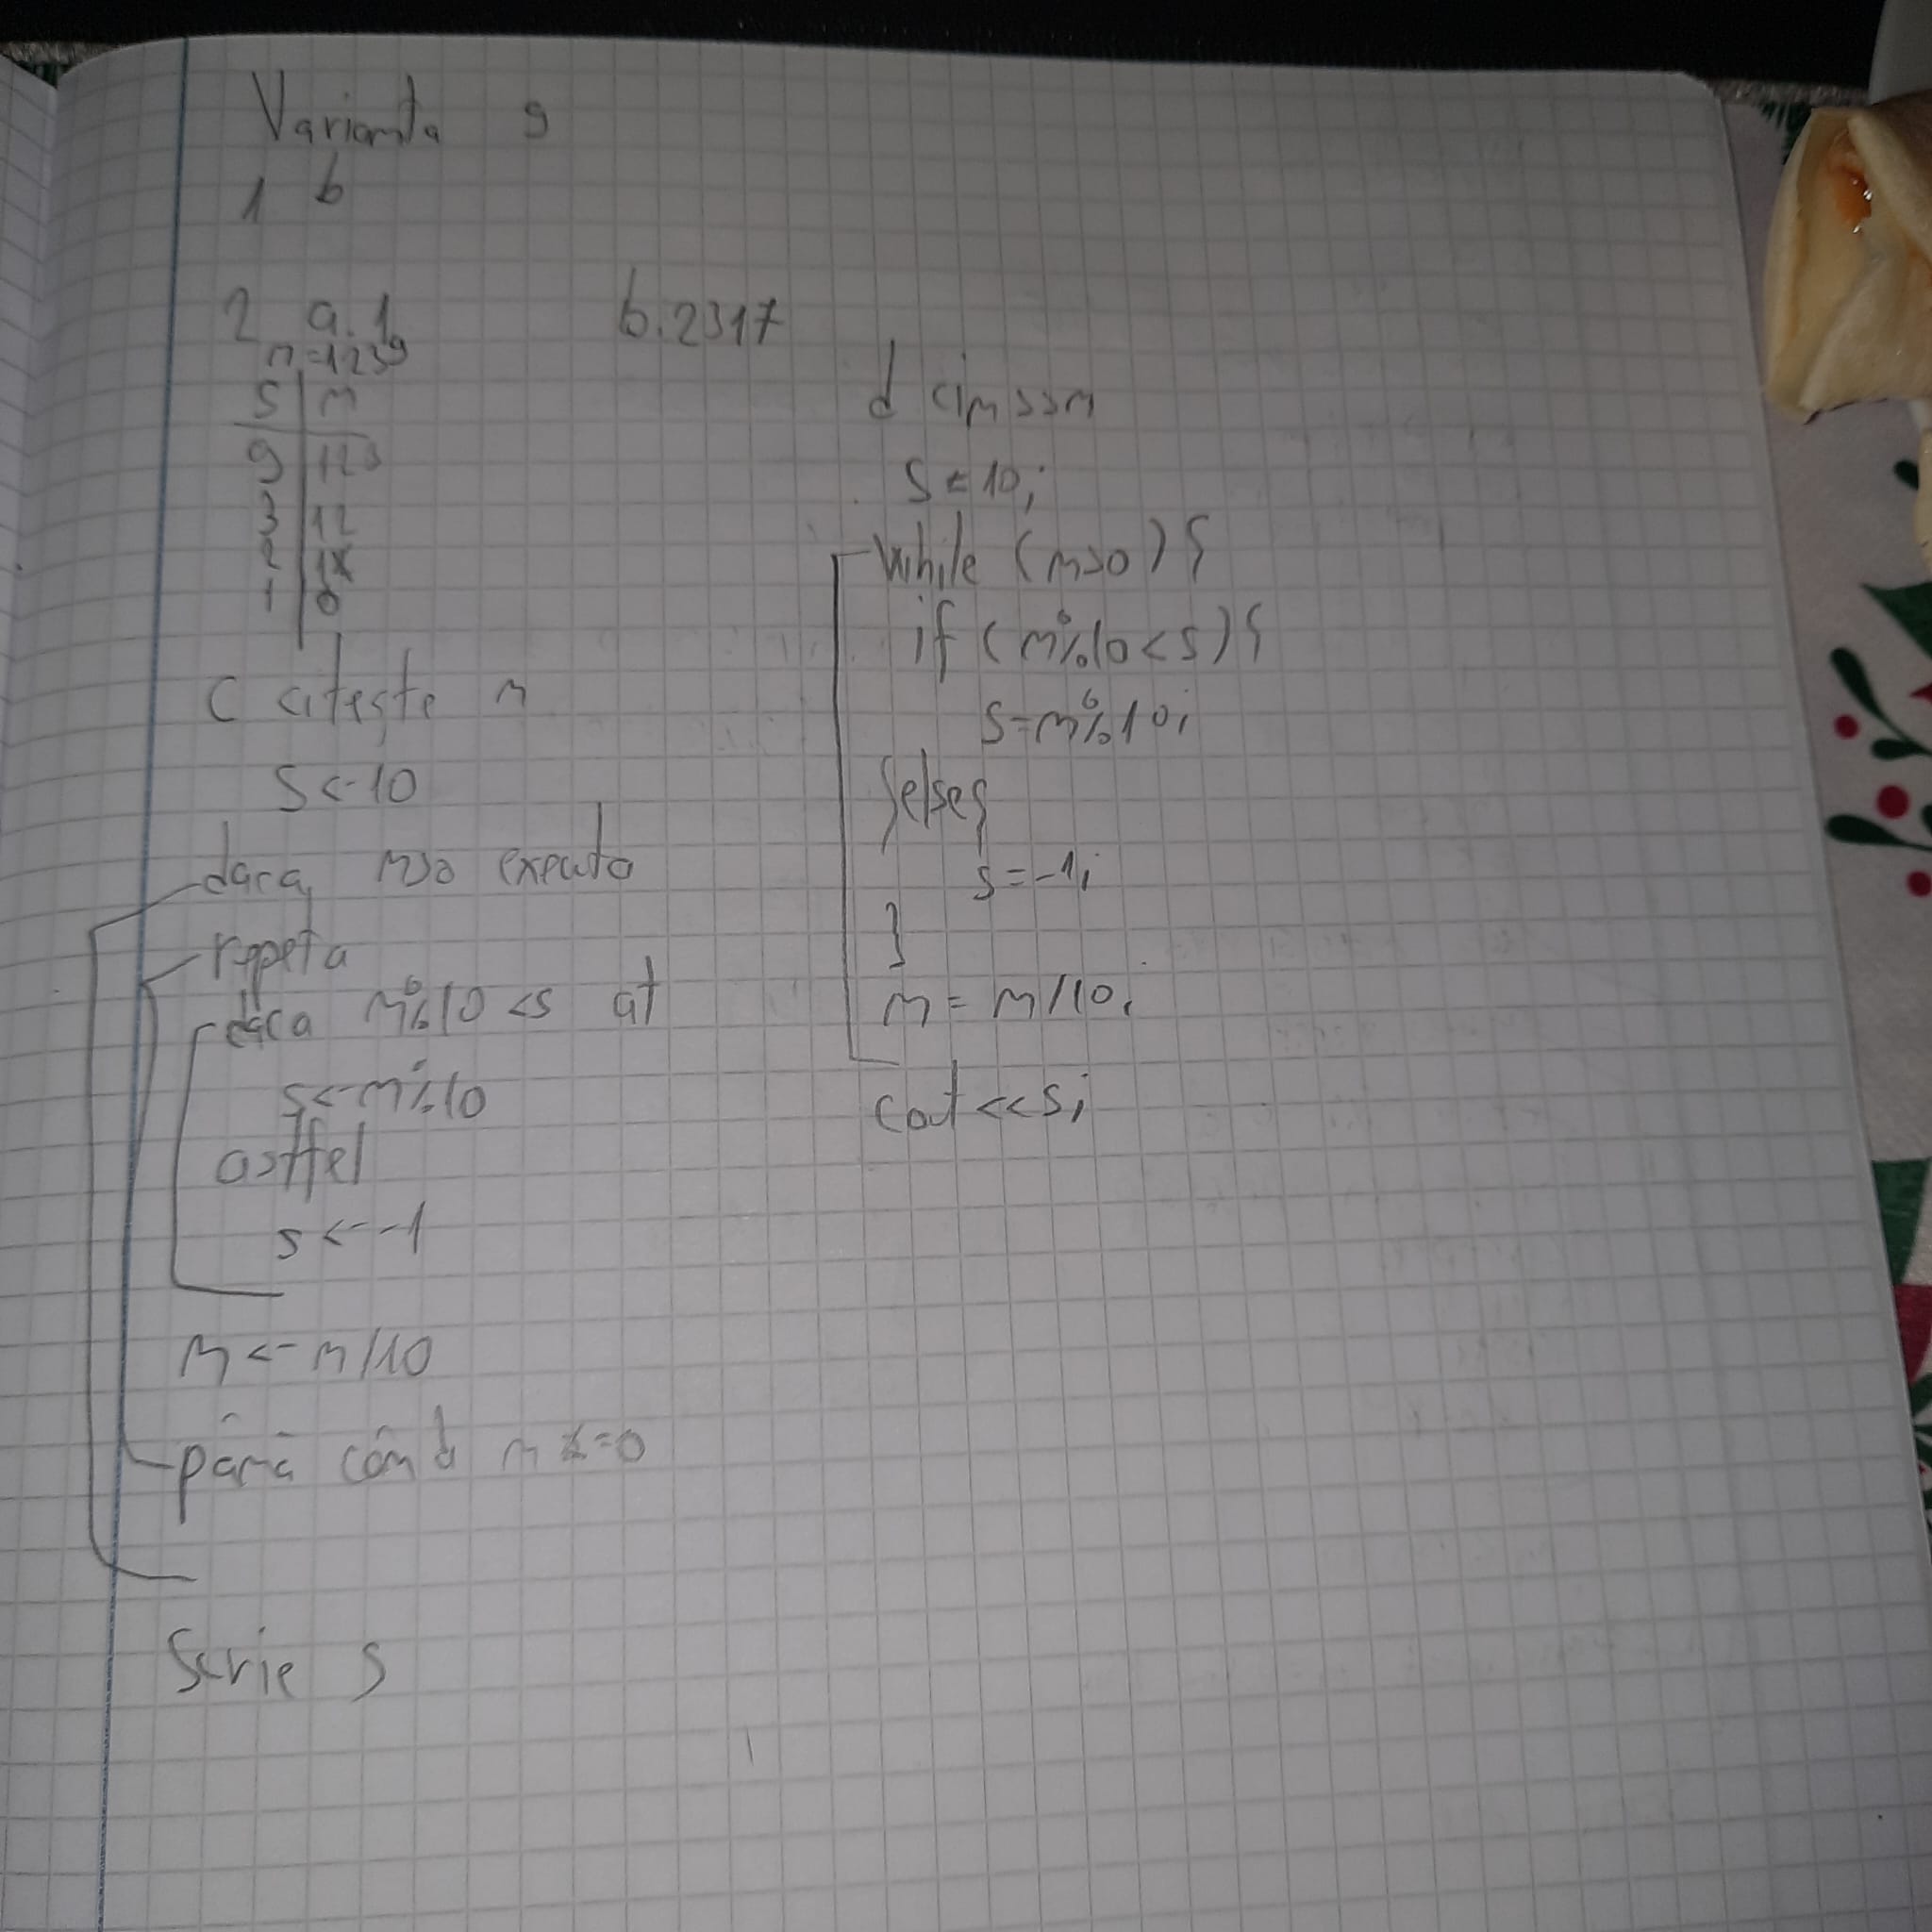 Varianta 9
1 b
2 a. 1
n=1239
b. 2317
s | n
9 | 123
3 | 12
2 | 1
1 | 0
c citește n
s<-10
dacă n>0 executa
repeta
daca n%10 <s at
s<-n%10
astfel
s<--1
n<-n/10
până când n =0
Scrie s
d cin>>n
s=10;
While (n>0) {
if (n%10<s){
s=n%10;
}else{
s=-1;
}
n=n/10;
cout<<s;